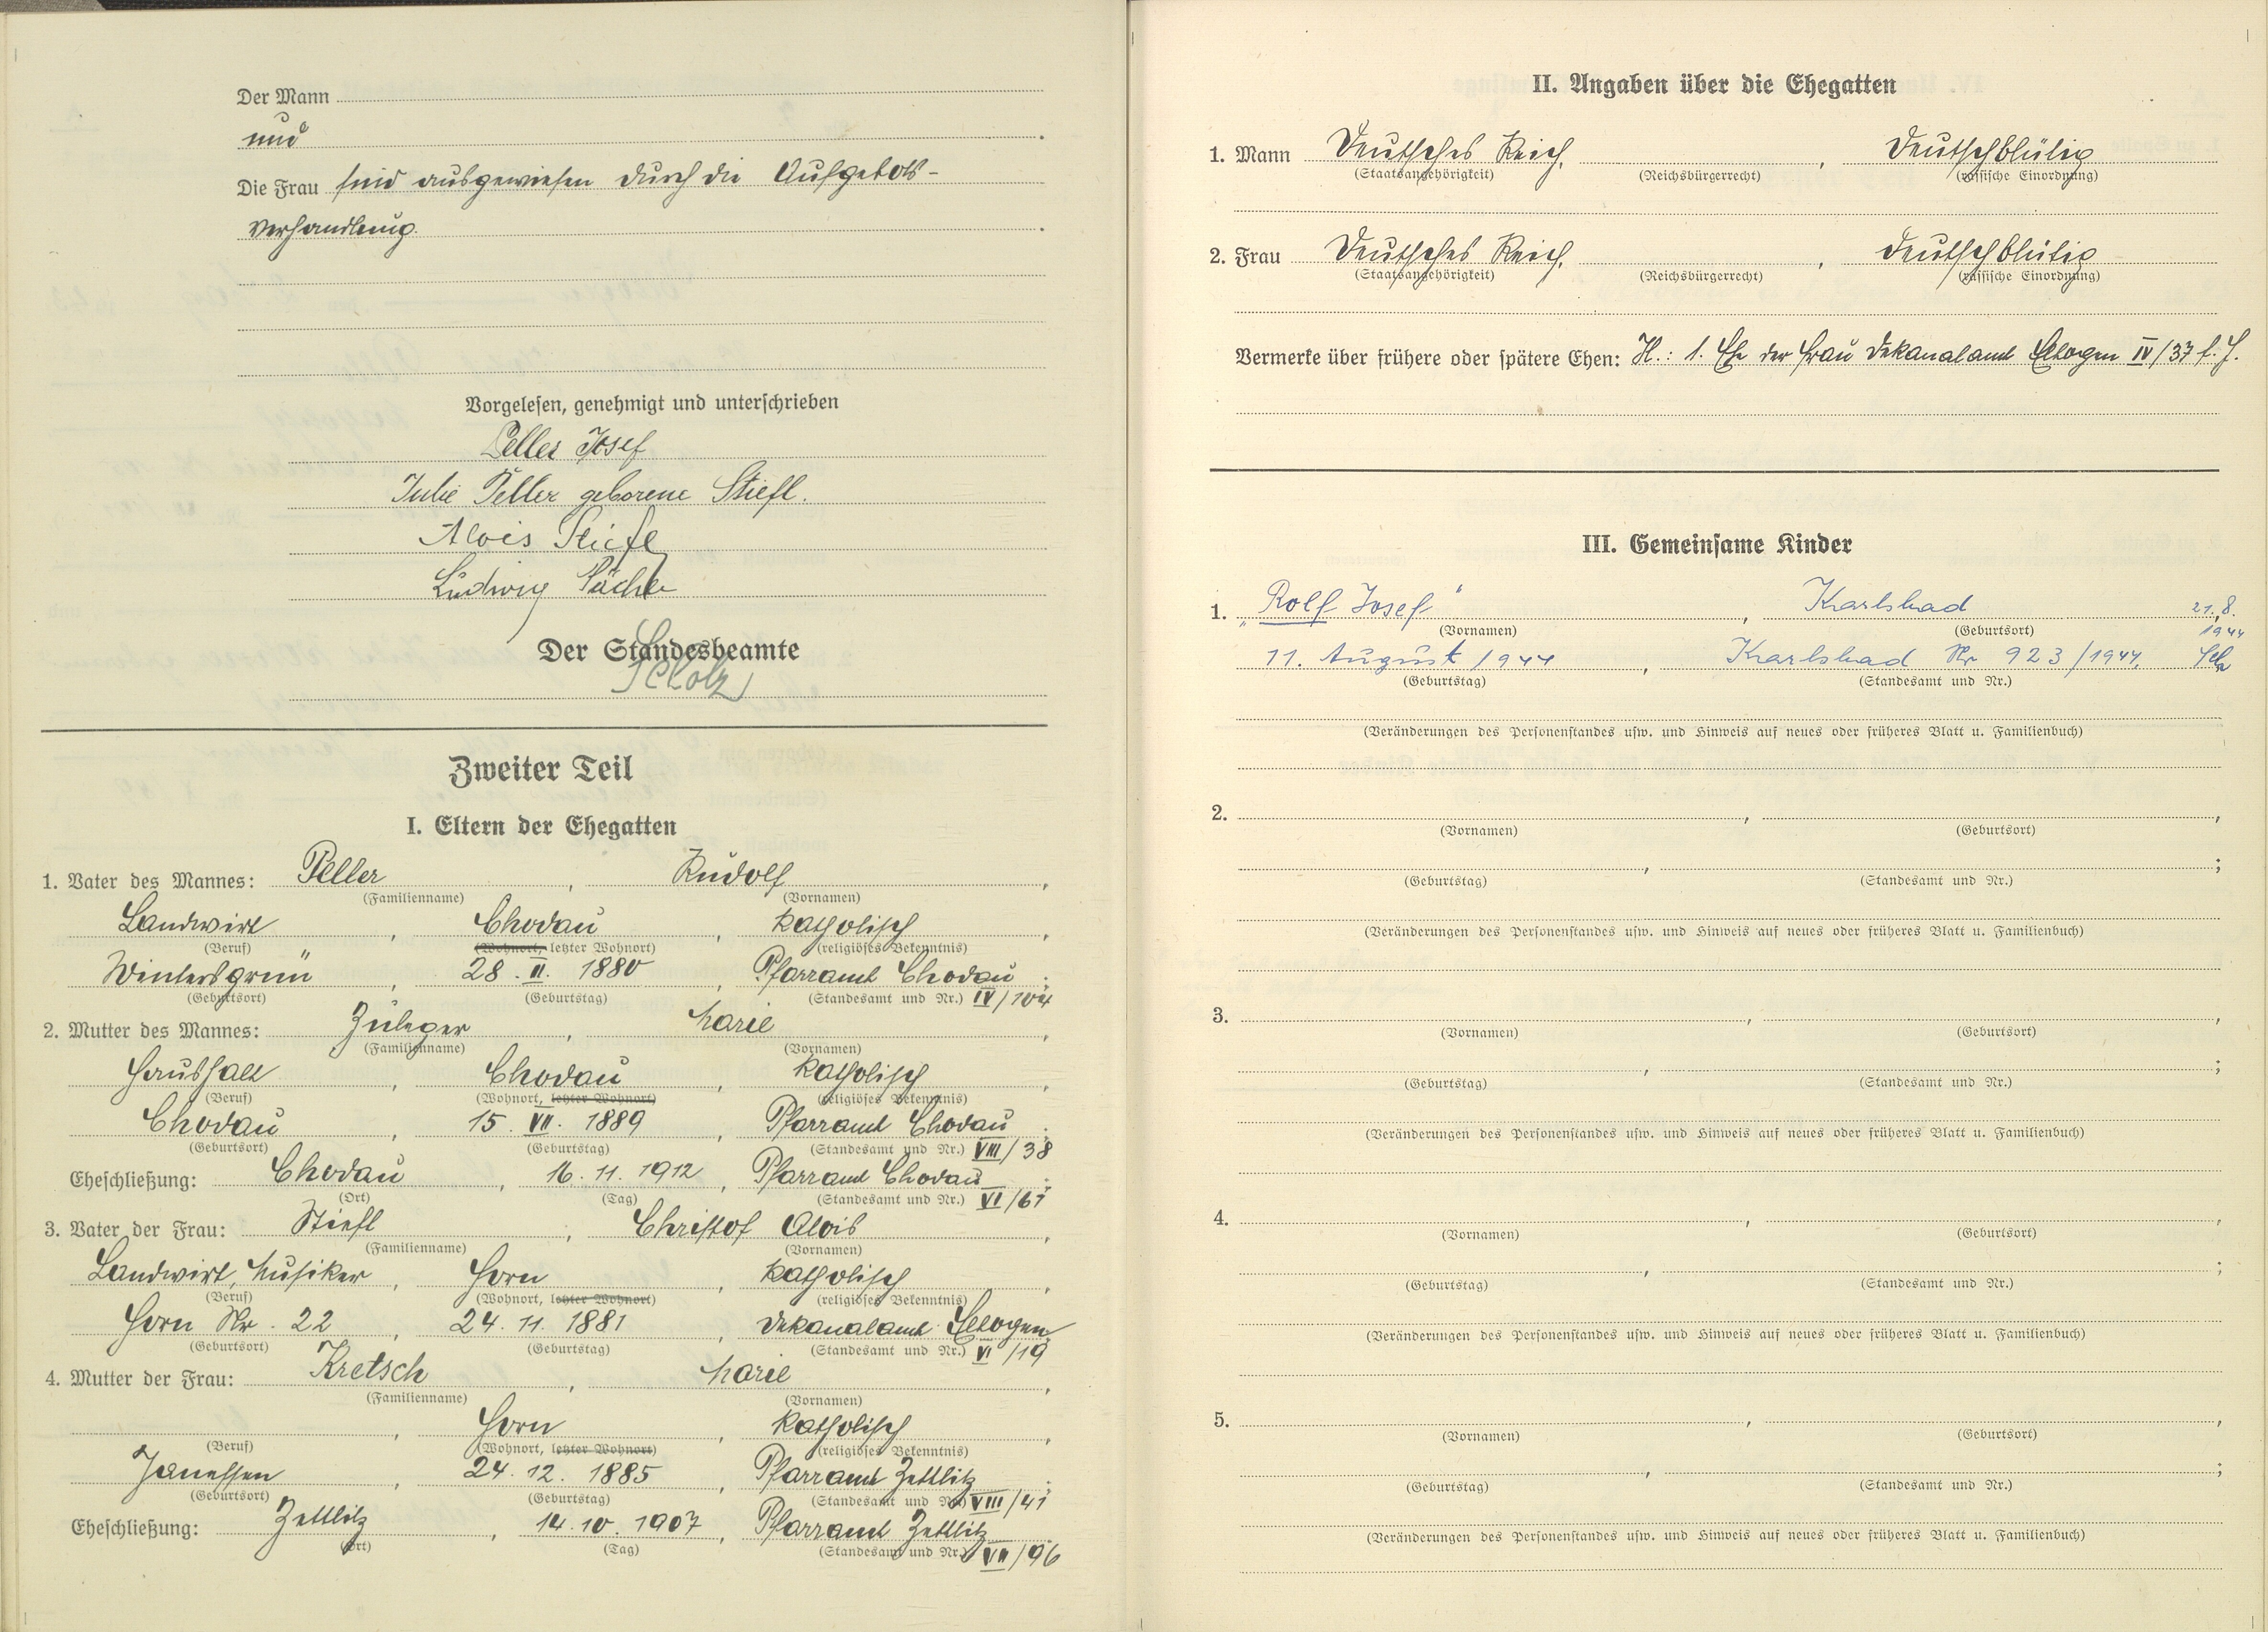 Der Mann
und
Die Frau sind ausgewiesen durch die Aufgebots-
verhandlung.
Vorgelesen, genehmigt und unterschrieben
Peller Josef
Julie Peller geborene Stiefl.
Alois Stiefl
Ludwig
Der Standesbeamte
Scholz
Zweiter Teil
I. Eltern der Ehegatten
1. Vater des Mannes: Peller, Rudolf,
(Familienname) (Vornamen)
Landwirt, Chodau, katholisch,
(Beruf) (Wohnort, letzter Wohnort) (religiöses Bekenntnis)
Wintersgrün, 28. II. 1880, Pfarramt Chodau;
(Geburtsort) (Geburtstag) (Standesamt und Nr.) IV/104
2. Mutter des Mannes: Zuleger, Marie,
(Familienname) (Vornamen)
Haushalt, Chodau, katholisch,
(Beruf) (Wohnort, letzter Wohnort) (religiöses Bekenntnis)
Chodau, 15. VII. 1889, Pfarramt Chodau;
(Geburtsort) (Geburtstag) (Standesamt und Nr.) VIII/38
Eheschließung: Chodau, 16. 11. 1912, Pfarramt Chodau;
(Ort) (Tag) (Standesamt und Nr.) VI/61
3. Vater der Frau: Stiefl, Christof Alois,
(Familienname) (Vornamen)
Landwirt, Musiker, Horn, katholisch,
(Beruf) (Wohnort, letzter Wohnort) (religiöses Bekenntnis)
Horn Nr. 22, 24. 11. 1881, Dekanalamt Elbogen
(Geburtsort) (Geburtstag) (Standesamt und Nr.) VI/19
4. Mutter der Frau: Kretsch, Marie,
(Familienname) (Vornamen)
Horn, katholisch,
(Beruf) (Wohnort, letzter Wohnort) (religiöses Bekenntnis)
Janessen, 24. 12. 1885, Pfarramt Zettlitz;
(Geburtsort) (Geburtstag) (Standesamt und Nr.) VIII/41
Eheschließung: Zettlitz, 14. 10. 1907, Pfarramt Zettlitz
(Ort) (Tag) (Standesamt und Nr.) VII/96
II. Angaben über die Ehegatten
1. Mann Deutsches Reich, , deutschblütig
(Staatsangehörigkeit) (Reichsbürgerrecht) (rassische Einordnung)
2. Frau Deutsches Reich, , deutschblütig
(Staatsangehörigkeit) (Reichsbürgerrecht) (rassische Einordnung)
Vermerke über frühere oder spätere Ehen: H.: 1. Ehe der Frau Dekanalamt Elbogen IV/37
III. Gemeinsame Kinder
1. "Rolf Josef", Karlsbad 21. 8.
(Vornamen) (Geburtsort) 1944
11. August 1944, Karlsbad Nr 923/1944.
(Geburtstag) (Standesamt und Nr.)
(Veränderungen des Personenstandes usw. und Hinweis auf neues oder früheres Blatt u. Familienbuch)
2. , ,
(Vornamen) (Geburtsort)
, ;
(Geburtstag) (Standesamt und Nr.)
(Veränderungen des Personenstandes usw. und Hinweis auf neues oder früheres Blatt u. Familienbuch)
3. , ,
(Vornamen) (Geburtsort)
, ;
(Geburtstag) (Standesamt und Nr.)
(Veränderungen des Personenstandes usw. und Hinweis auf neues oder früheres Blatt u. Familienbuch)
4. , ,
(Vornamen) (Geburtsort)
, ;
(Geburtstag) (Standesamt und Nr.)
(Veränderungen des Personenstandes usw. und Hinweis auf neues oder früheres Blatt u. Familienbuch)
5. , ,
(Vornamen) (Geburtsort)
, ;
(Geburtstag) (Standesamt und Nr.)
(Veränderungen des Personenstandes usw. und Hinweis auf neues oder früheres Blatt u. Familienbuch)